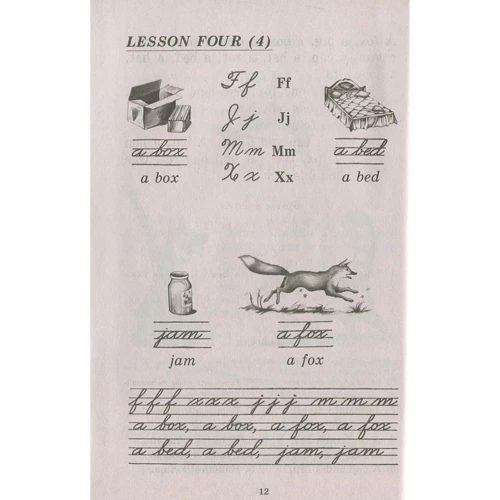 LESSON FOUR (4)
F f Ff
J j Jj
M m Mm
X x Xx
a box
a box
a bed
a bed
jam
jam
a fox
a fox
f f f x x x j j j m m m
a box, a box, a fox, a fox
a bed, a bed, jam, jam
12